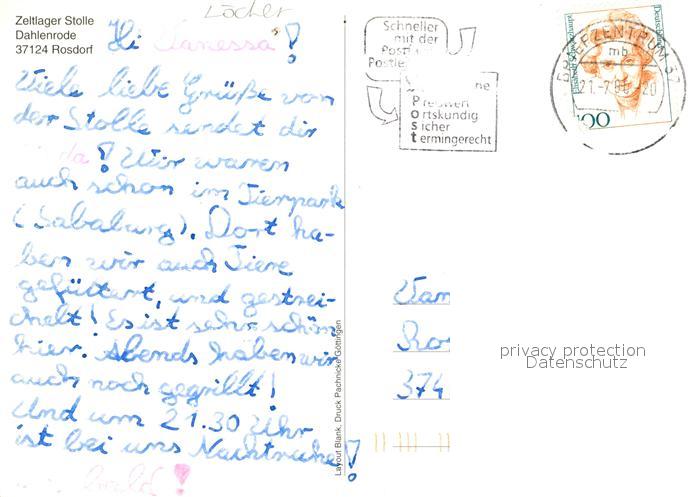 Zeltlager Stolle
Dahlenrode
37124 Rosdorf
Löcher
Hi Vanessa!
Viele liebe Grüße von
der Stolle sendet dir
da! Wir waren
auch schon im Tierpark
(Sababurg). Dort ha-
ben wir auch Tiere
gefüttert, und gestrei-
chelt! Es ist sehr schön
hier. Abends haben wir
auch noch gegrillt!
Und um 21.30 Uhr
ist bei uns Nachtruhe!
bald!
Layout Blank, Druck Pachnicke Göttingen
Schneller
mit der
Post
Postle
ne
Preuwen
Ortskundig
Sicher
termingerecht
BRIEFZENTRUM 37
mb
21.-7.00.-20
Deutsche
100
Van
Ro
374
privacy protection
Datenschutz